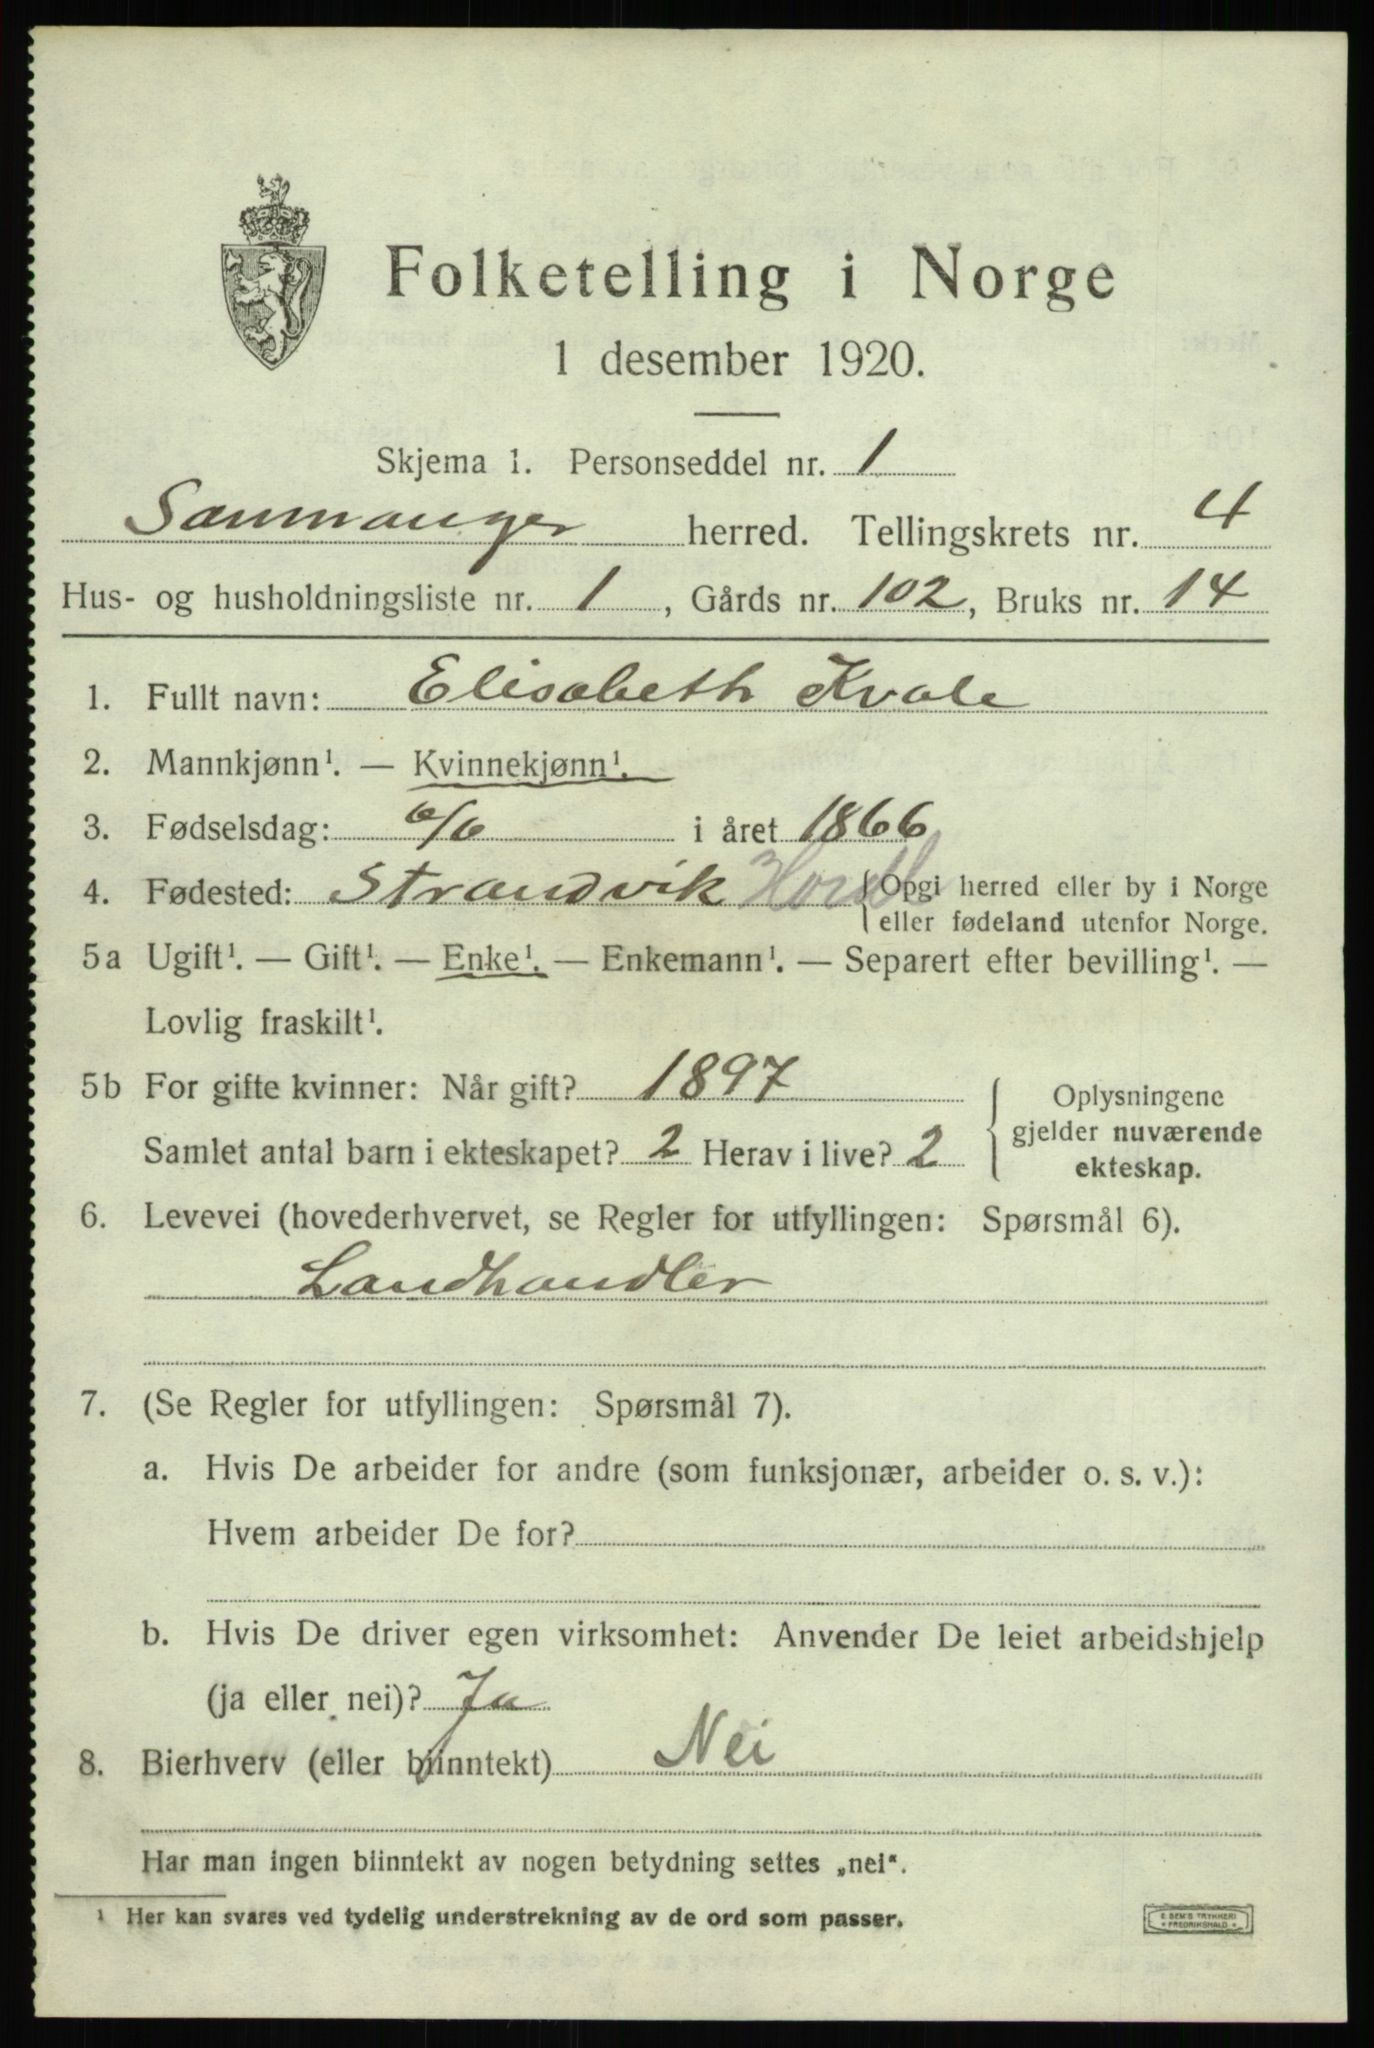 Folketelling i Norge
1 desember 1920.
Skjema 1. Personseddel nr. 1
Sammanger herred. Tellingskrets nr. 4
Hus- og husholdningsliste nr. 1, Gårds nr. 102, Bruks nr. 14
1. Fullt navn: Elisabeth Kvale
2. Mannkjønn¹. — Kvinnekjønn¹.
3. Fødselsdag: 6/6 i året 1866
4. Fødested: Strandvik Hordl {Opgi herred eller by i Norge
eller fødeland utenfor Norge.
5a Ugift¹. — Gift¹. — Enke¹. — Enkemann¹. — Separert efter bevilling¹. —
Lovlig fraskilt¹.
5b For gifte kvinner: Når gift? 1897
Samlet antal barn i ekteskapet? 2 Herav i live? 2
{ Oplysningene
gjelder nuværende
ekteskap.
6. Levevei (hovederhvervet, se Regler for utfyllingen: Spørsmål 6).
Landhandler
7. (Se Regler for utfyllingen: Spørsmål 7).
a. Hvis De arbeider for andre (som funksjonær, arbeider o. s. v.):
Hvem arbeider De for?
b. Hvis De driver egen virksomhet: Anvender De leiet arbeidshjelp
(ja eller nei)? Ja
8. Bierhverv (eller biinntekt) Nei
Har man ingen biinntekt av nogen betydning settes „nei“.
¹ Her kan svares ved tydelig understrekning av de ord som passer.
E. SEM'S TRYKKERI
* FREDRIKSHALD *